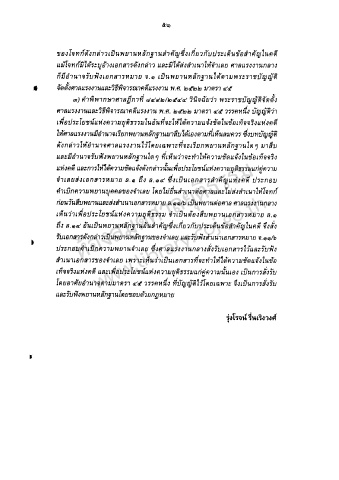 ๕๖
ของโจทก์ดังกล่าวเป็นพยานหลักฐานสำคัญซึ่งเกี่ยวกับประเด็นข้อสำคัญในคดี
แม้โจทก์มิได้ระบุอ้างเอกสารดังกล่าว และมิได้ส่งสำเนาให้จำเลย ศาลแรงงานกลาง
ก็มีอำนาจรับฟังเอกสารหมาย จ.๑ เป็นพยานหลักฐานได้ตามพระราชบัญญัติ
จัดตั้งศาลแรงงานและวิธีพิจารณาคดีแรงงาน พ.ศ. ๒๕๒๒ มาตรา ๔๕
๓) คำพิพากษาศาลฎีกาที่ /๒๕๔๔ วินิจฉัยว่า พระราชบัญญัติจัดตั้ง
ศาลแรงงานและวิธีพิจารณาคดีแรงงาน พ.ศ. ๒๕๒๒ มาตรา ๔๕ วรรคหนึ่ง บัญญัติว่า
เพื่อประโยชน์แห่งความยุติธรรมในอันที่จะให้ได้ความแจ้งชัดในข้อเท็จจริงแห่งคดี
ให้ศาลแรงงานมีอำนาจเรียกพยานหลักฐานมาสืบได้เองตามที่เห็นสมควร ซึ่งบทบัญญัติ
ดังกล่าวให้อำนาจศาลแรงงานไว้โดยเฉพาะที่จะเรียกพยานหลักฐานใด ๆ มาสืบ
และมีอำนาจรับฟังพยานหลักฐานใด ๆ ที่เห็นว่าจะทำให้ได้ความชัดแจ้งในข้อเท็จจริง
แห่งคดี และการให้ได้ความชัดแจ้งดังกล่าวนั้นเพื่อประโยชน์แห่งความยุติธรรมแก่คู่ความ
จำเลยส่งเอกสารหมาย ล.๑ ถึง ล.๑๔ ซึ่งเป็นเอกสารสำคัญแห่งคดี ประกอบ
คำเบิกความพยานบุคคลของจำเลย โดยไม่ยื่นสำเนาต่อศาลและไม่ส่งสำเนาให้โจทก์
ก่อนวันสืบพยานและส่งสำเนาเอกสารหมาย เป็นพยานต่อศาล ศาลแรงงานกลาง
เห็นว่าเพื่อประโยชน์แห่งความยุติธรรม จำเป็นต้องสืบพยานเอกสารหมาย ล.๑
ถึง ล.๑๔ อันเป็นพยานหลักฐานอันสำคัญซึ่งเกี่ยวกับประเด็นข้อสำคัญในคดี จึงสั่ง
รับเอกสารดังกล่าวเป็นพยานหลักฐานของจำเลย และรับฟังสำเนาเอกสารหมาย
ประกอบคำเบิกความพยานจำเลย ซึ่งศาลแรงงานกลางสั่งรับเอกสารไว้และรับฟัง
สำเนาเอกสารของจำเลย เพราะเห็นว่าเป็นเอกสารที่จะทำให้ได้ความชัดแจ้งในข้อ
เท็จจริงแห่งคดี และเพื่อประโยชน์แห่งความยุติธรรมแก่คู่ความนั้นเอง เป็นการสั่งรับ
โดยอาศัยอำนาจตามมาตรา ๔๕ วรรคหนึ่ง ที่บัญญัติไว้โดยเฉพาะ จึงเป็นการสั่งรับ
และรับฟังพยานหลักฐานโดยชอบด้วยกฎหมาย
รุ่งโรจน์ รื่นเริงวงศ์